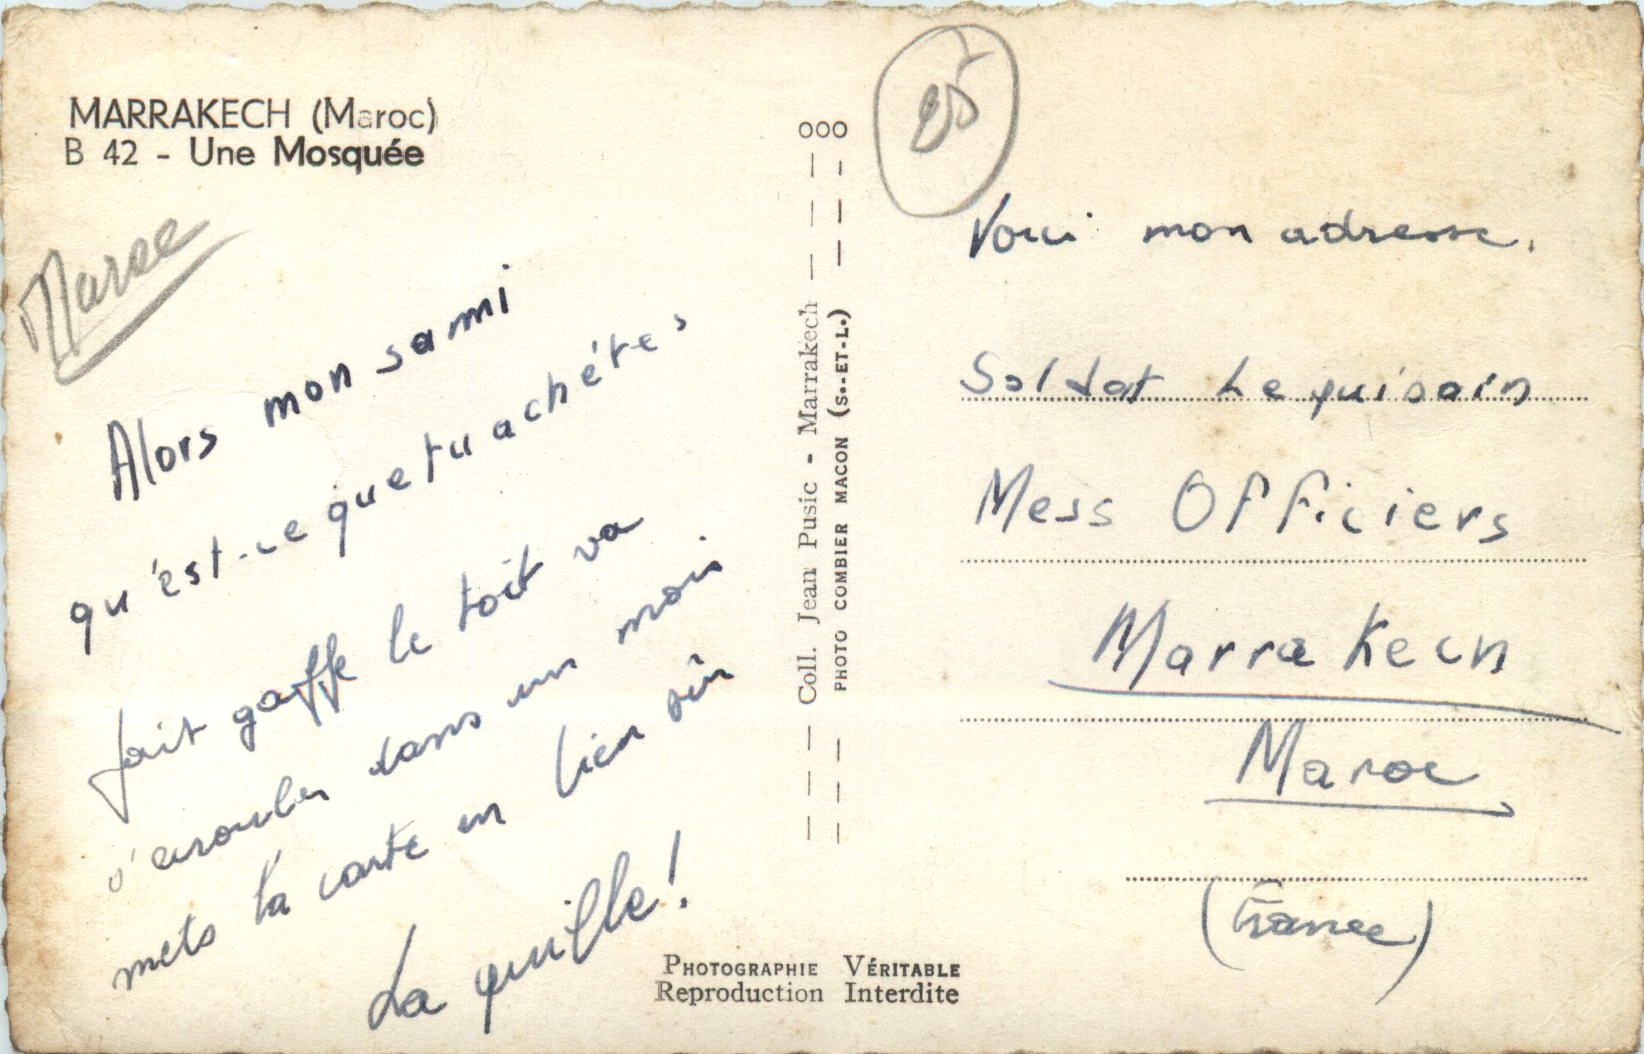 MARRAKECH (Maroc)
B 42 - Une Mosquée
Maroc
Alors mon sami
qu'est-ce que tu achétes
fait gaffe le toit va
s'ecrouler dans un mois
mets ta carte en bien sûr
La quille!
ooo
Coll. Jean Pusic - Marrakech
PHOTO COMBIER MACON (S.-ET-L.)
PHOTOGRAPHIE VÉRITABLE
Reproduction Interdite
85
Voici mon adresse.
Soldat Lequisain
Mess Officiers
Marrakech
Maroc
(France)